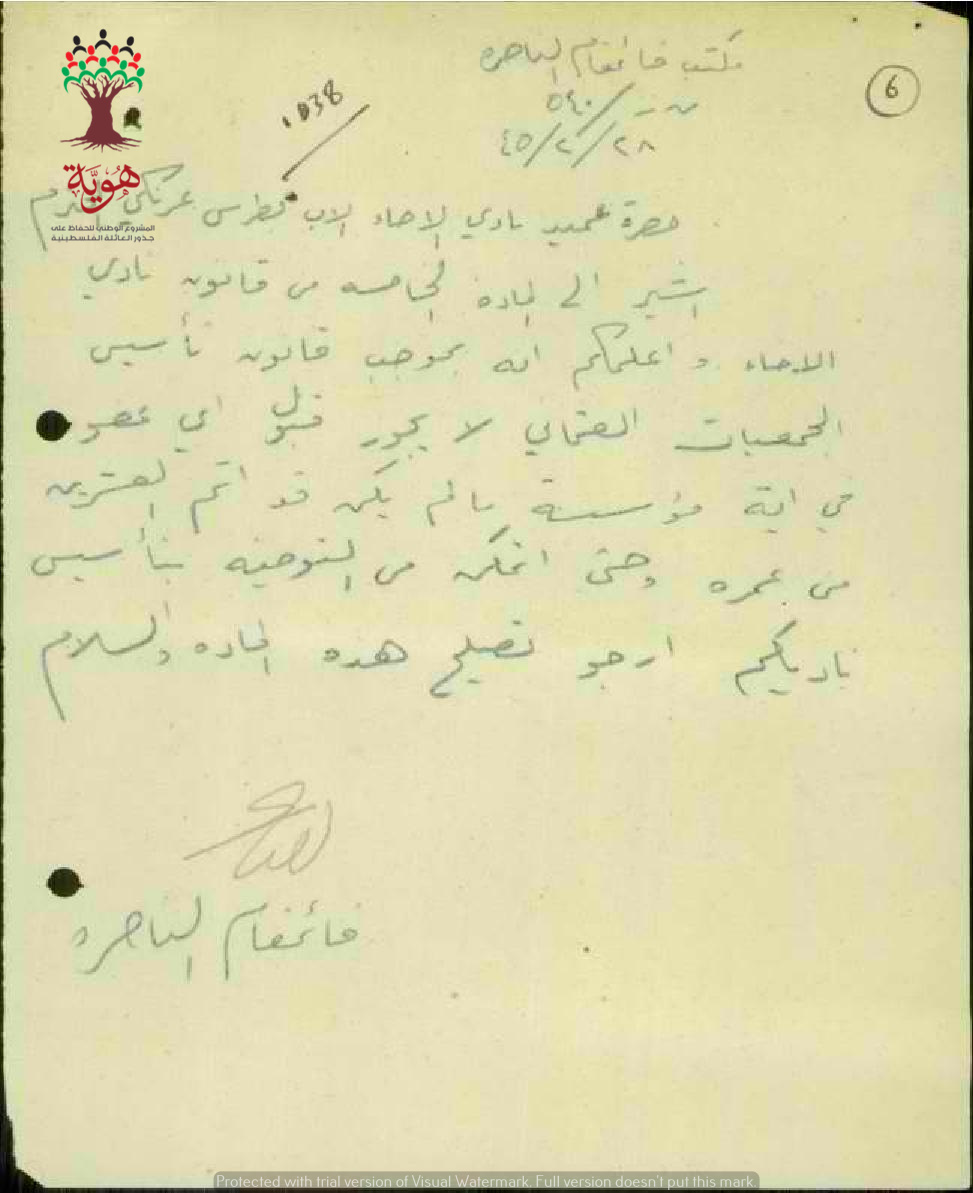 6
مكتب قائمقام الناصره
ن ر / ٥٤٠
٢٨/٢/٤٥
1038
حضرة عميد نادي الاخاء الاب بطرس المحترم
اشير الى المادة الخامسه من قانون نادي
الاخاء و اعلمكم انه بموجب قانون تأسيس
الجمعيات العثماني لا يجوز قبول اي عضو
في اية مؤسسة ما لم يكن قد اتم العشرين
من عمره وحتى اتمكن من التوصيه بتأسيس
ناديكم ارجو تصليح هذه الماده والسلام
قائمقام الناصره
هويّة
المشروع الوطني للحفاظ على
جذور العائلة الفلسطينية
Protected with trial version of Visual Watermark. Full version doesn't put this mark.